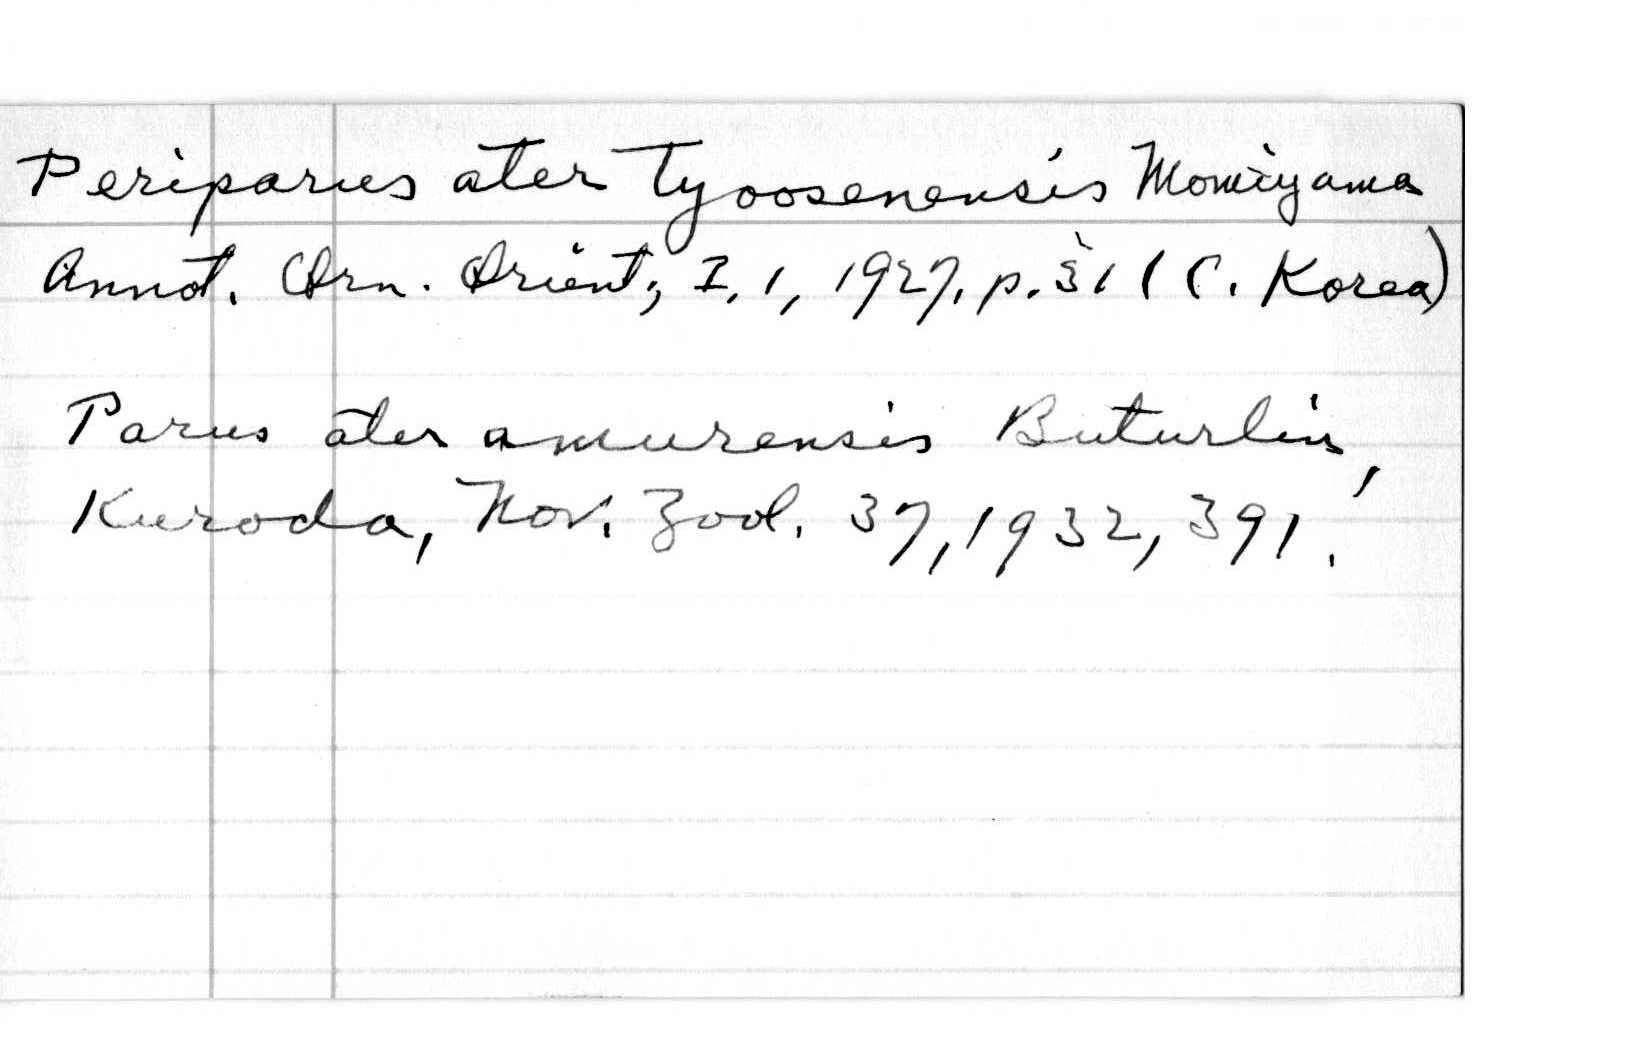 Periparus ater tyoosenensis Momiyama
Annot. Orn. Orient; I, 1, 1927, p. 31 (C. Korea)
Parus ater amurensis Buturlin,
Kuroda, Nov. Zool. 37, 1932, 391.